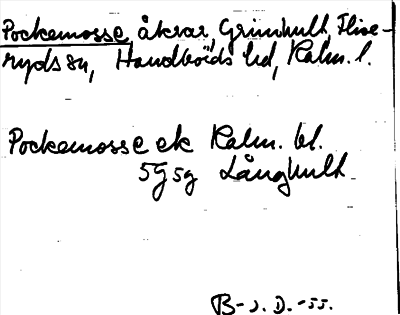 Pockemosse, åkrar, Grimhult, Flise-
ryds sn, Handbörds hd, Kalm. l.
Pockemosse ek Kalm. bl.
5G5g Långhult
B-s. D. -55.